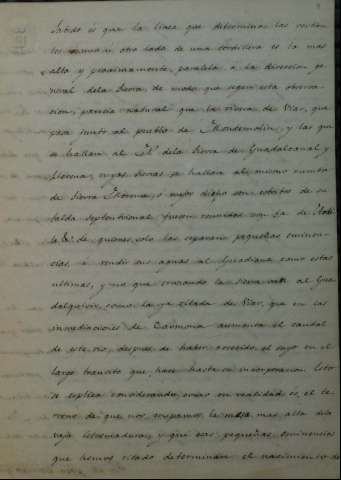 Sabido es que la linea que determina las vertien
tes a uno u otro lado de una cordillera es la mas
alta y proximamente paralela a la direccion ge
neral de la Sierra, de modo que segun esta observa
cion, parecia natural que la rivera de Viar, que
pasa junto al pueblo de Montemolin, y las que
se hallan al de la Sierra de Guadalcanal y
Llerena, cuyas Sierras se hallan al mismo rumbo
de Sierra Morena, ó mejor dicho son estribos de su
falda septentrional fuesen reunidas con la de
de quienes solo las separan pequeñas eminen
cias, á rendir sus aguas al Guadiana como estas
ultimas, y no que cruzando la Sierra al Gua
dalquivir, como la ya citada de Viar, que en las
inmediaciones de Carmona aumenta el caudal
de este rio, despues de haber crecido el suyo en el
largo transito que hace hasta su incorporacion. Esto
se esplica considerando, como en realidad es, el te
rreno de que nos ocupamos, la mesa mas alta de la
baja Estremadura, y que esas pequeñas eminencias
que hemos citado determinan el nacimiento de